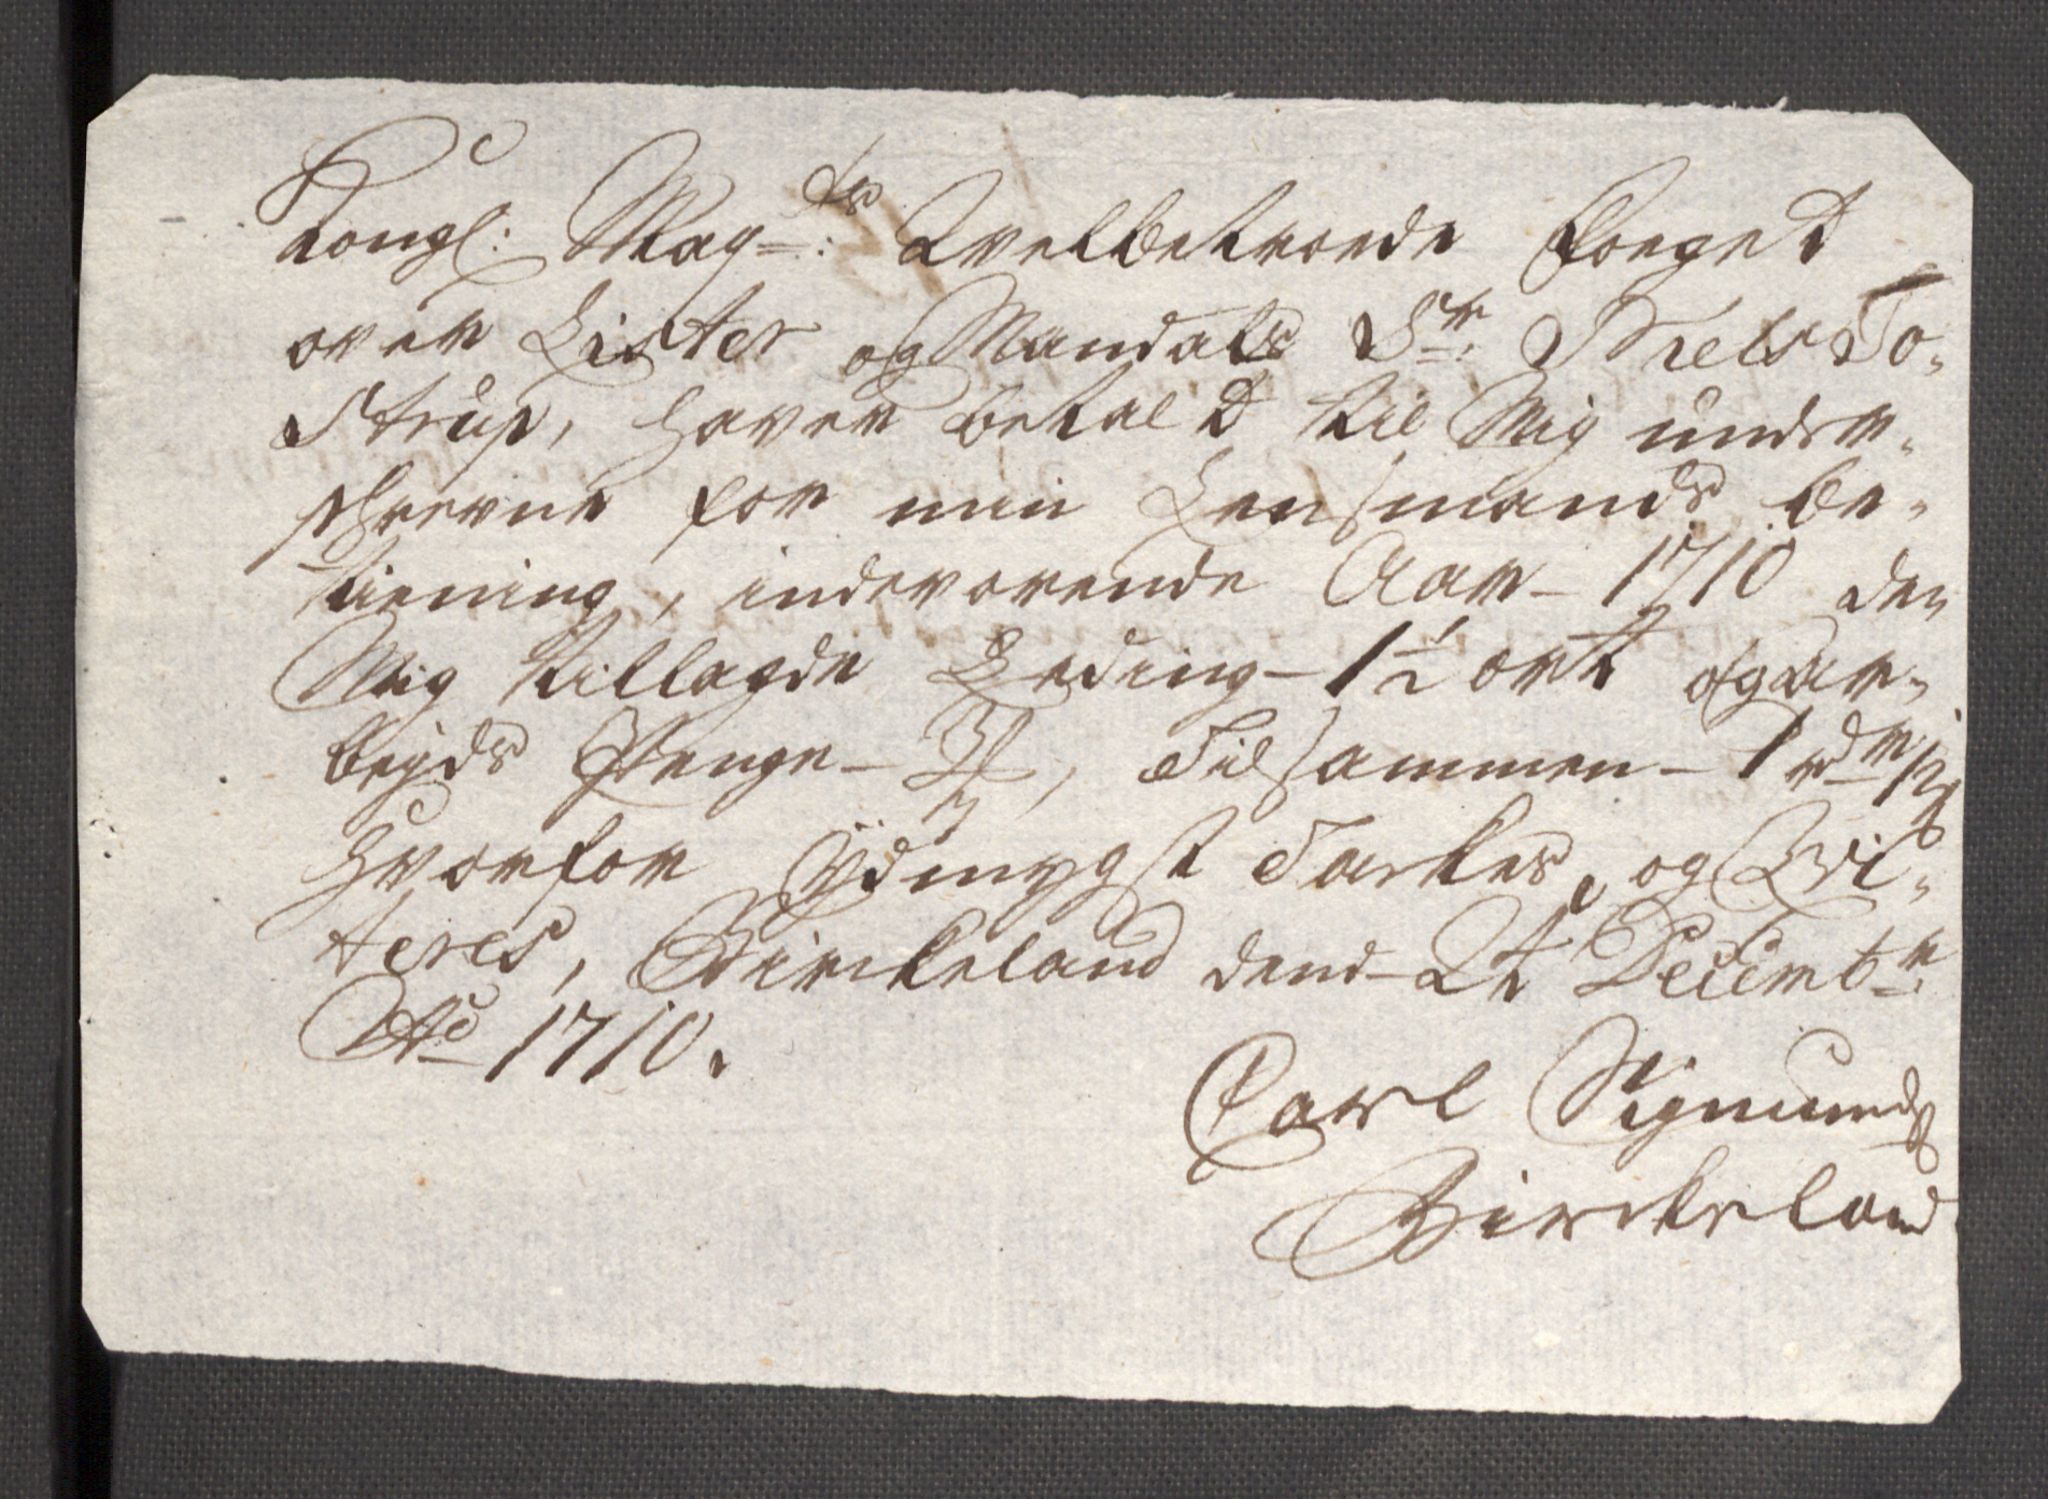 Kongl: May=ts: Welbetroede Foeget
over Lister og Mandals Sr: Niels To-
Strup, haver betalt til Mig under-
skrevne for min Lensmands be-
tiening, indeværende Aar - 1710 den
Mig tillagde Leding - 1½ ort og ar-
beyds Penge - Tilsammen - 1 rdr
Hvorfor Ydmygst Tackes, og Qvi-
teres, Birckeland dend - 2t Decembr:
Ao 1710.
Carl Sigmunds
Birckeland